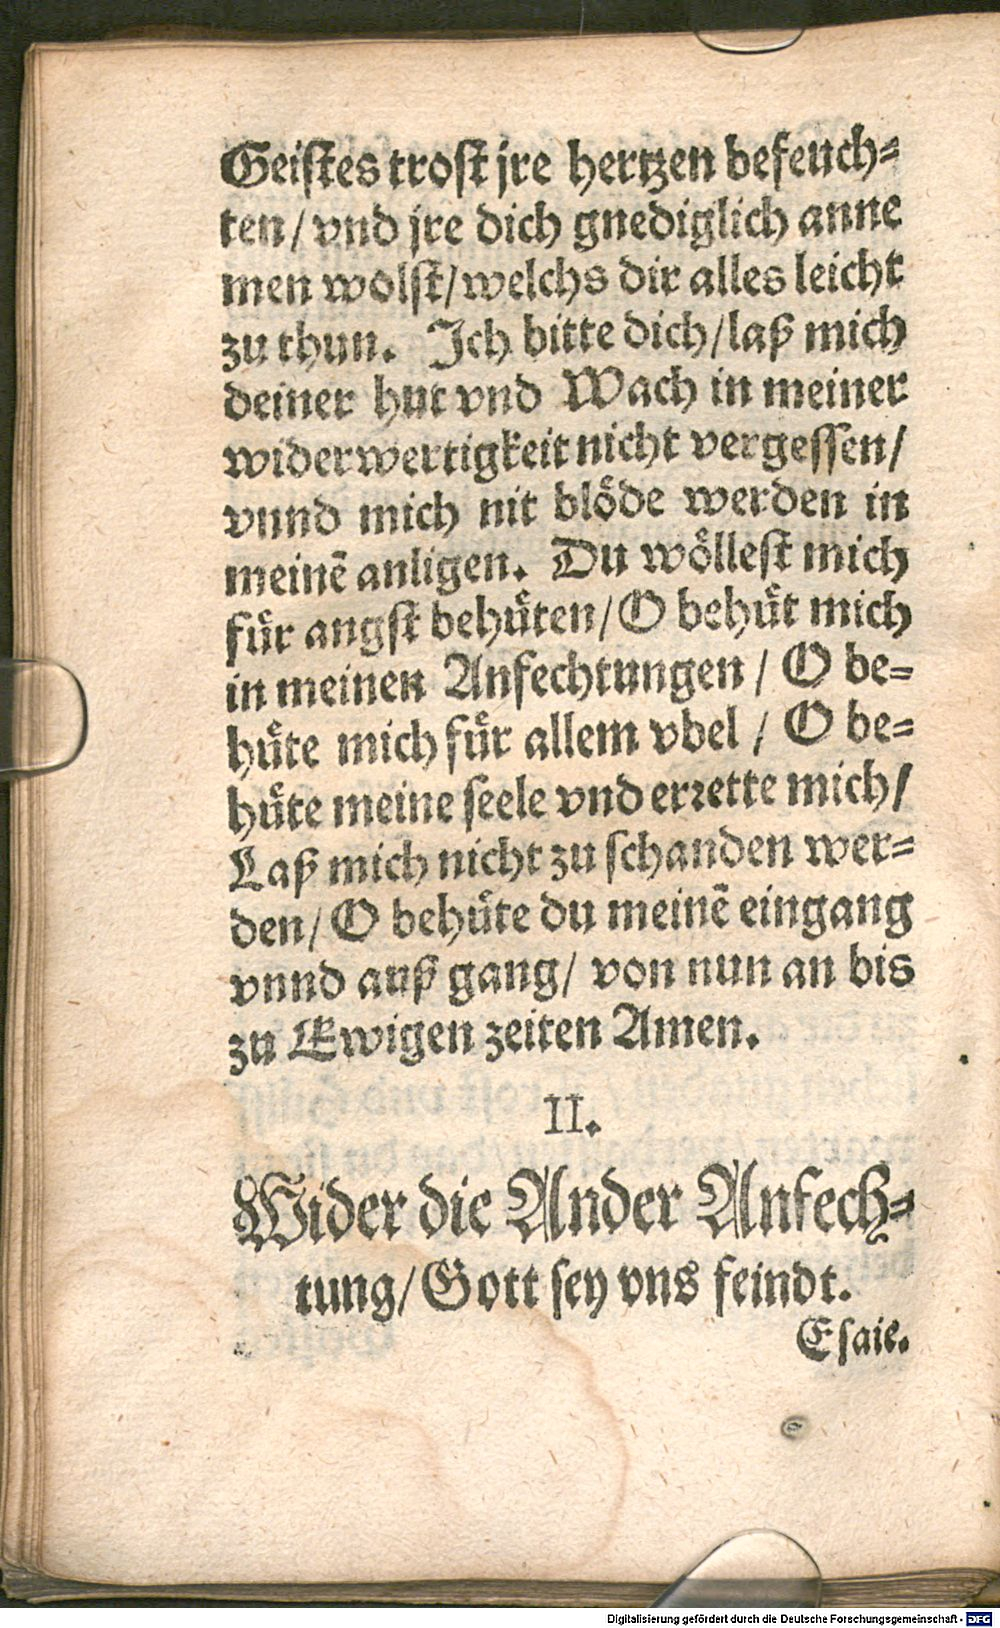 Geiſtes troſt jre hertzen befeuch⸗
ten/ vnd jre dich gnediglich anne
men wolſt/ welchs dir alles leicht
zu thun. Ich bitte dich/ laß mich
deiner hut vnd Wach in meiner
widerwertigkeit nicht vergeſſen/
vnnd mich nit bloͤde werden in
meinē anligen. Du woͤlleſt mich
fuͤr angſt behuͤten/ O behuͤt mich
in meinen Anfechtungen / O be⸗
huͤte mich fuͤr allem vbel / O be⸗
huͤte meine ſeele vnd erꝛette mich/
Laß mich nicht zu ſchanden wer⸗
den/ O behuͤte du meinē eingang
vnnd auß gang/ von nun an bis
zu Ewigen zeiten Amen.
II.
Wider die Ander Anfech⸗
tung/ Gott ſey vns feindt.
Eſaie.
Digitalisierung gefördert durch die Deutsche Forschungsgemeinschaft - DFG